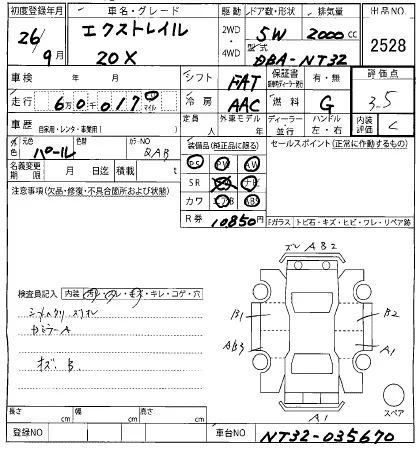 初度登録年月 車名・グレード 駆動 ドア数・形状 排気量 出品NO
26年 エクストレイル 2WD 5W 2000cc 2528
9月 20X 4WD 型式 DBA-NT32
車検 年 月 シフト FAT 保証書 有・無 評価点
走行 6万0千017 km マイル 冷房 AAC 燃料 G 3.5
車歴 自家用・レンタ・事業用( ) 定員 人 外車モデル 年 ディーラー・並行 ハンドル 左・右 内装評価 C
外色 元色 パール 色替 カラーNO QAB 装備品(純正品に限る) セールスポイント(正常に作動するもの)
PS PW AW
名義変更期限 月 日迄 積載 t SR ナビ
カワ エアB ABS
注意事項(欠品・修復・不具合箇所および状態) R券 10850円 Fガラス トビ石・キズ・ヒビ・ワレ・リペア跡
ズレ AB2
検査員記入 内装 汚レ・スレ・キズ・キレ・コゲ・穴
B1 B2
AB3 A1
キズ B
スペア
A1
長さ cm 幅 cm 高さ cm
登録NO 車台NO NT32-035670